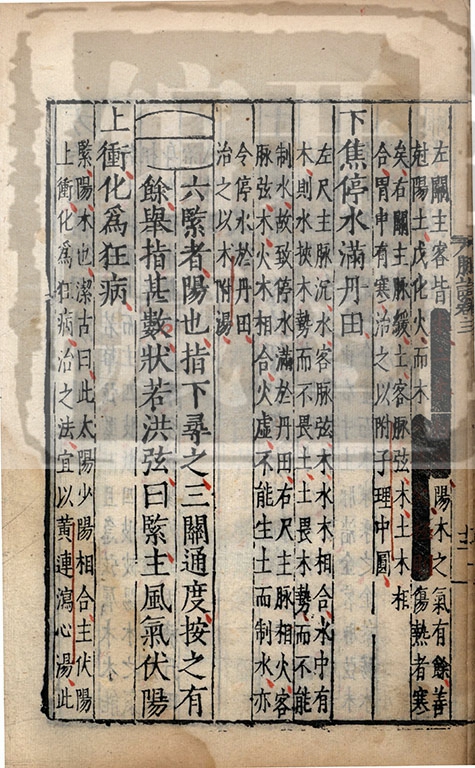 左關主客皆陽木之氣有餘善
射陽土戊化火而木傷熱者寒
矣右關主脉緩土客脉弦木土木相
合胃中有寒治之以附子理中圓
下焦停水滿丹田
左尺主脉沉水客脉弦木水木相合水中有
木則水挾木勢而不畏土土畏木勢而不能
制水故致停水滿於丹田右尺主脉相火客
脉弦木火木相合火虛不能生土而制水亦
令停水於丹田
治之以木附湯
六緊者陽也指下尋之三關通度按之有
餘舉指甚數狀若洪弦曰緊主風氣伏陽
上衝化爲狂病
緊陽木也潔古曰此太陽少陽相合主伏陽
上衝化爲狂病治之法宜以黄連瀉心湯此
脉訣卷三